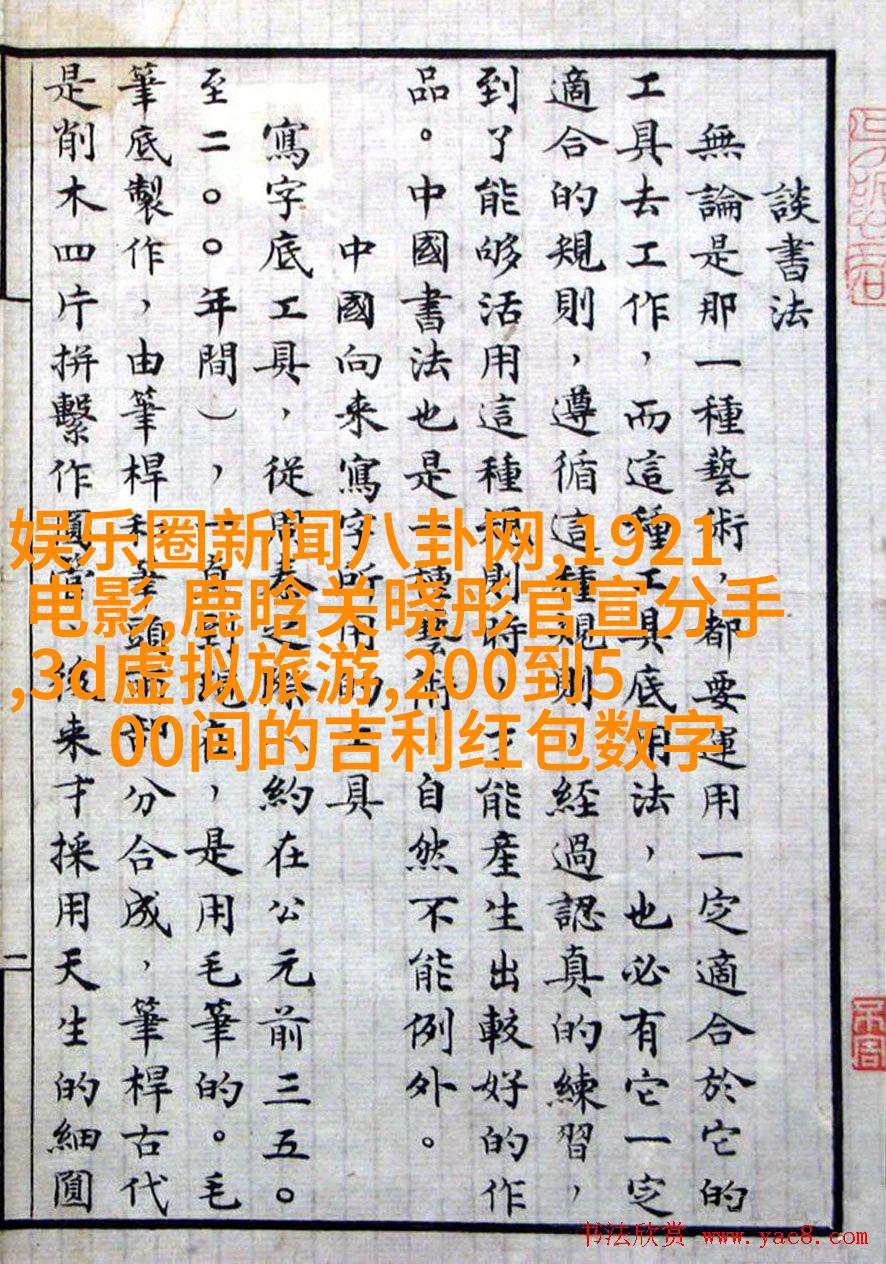 談書法
無論是那一種藝術，都要運用一定適合於它的
工具去工作，而這種工具底用法，也必有它一定
適合的規則，遵循這種規則，經過認真的練習，
到了能够活用這種規則時，才能產生出較好的作
品。中國書法也是一種藝術，自然不能例外。
中國向來寫字所用的工具
寫字底工具，從周秦之際（約在公元前三五〇
至二〇〇年間），一直到現在，是用毛筆的。毛
筆底製作，由筆桿和筆頭兩部分合成，筆桿古代
是削木四片拼繫作圓管，後來才採用天生的細圓
二
娱乐圈新闻八卦网,1921
电影,鹿晗关晓彤官宣分手
,3d虚拟旅游,200到5
00间的吉利红包数字
书法欣赏 www.yac8.com